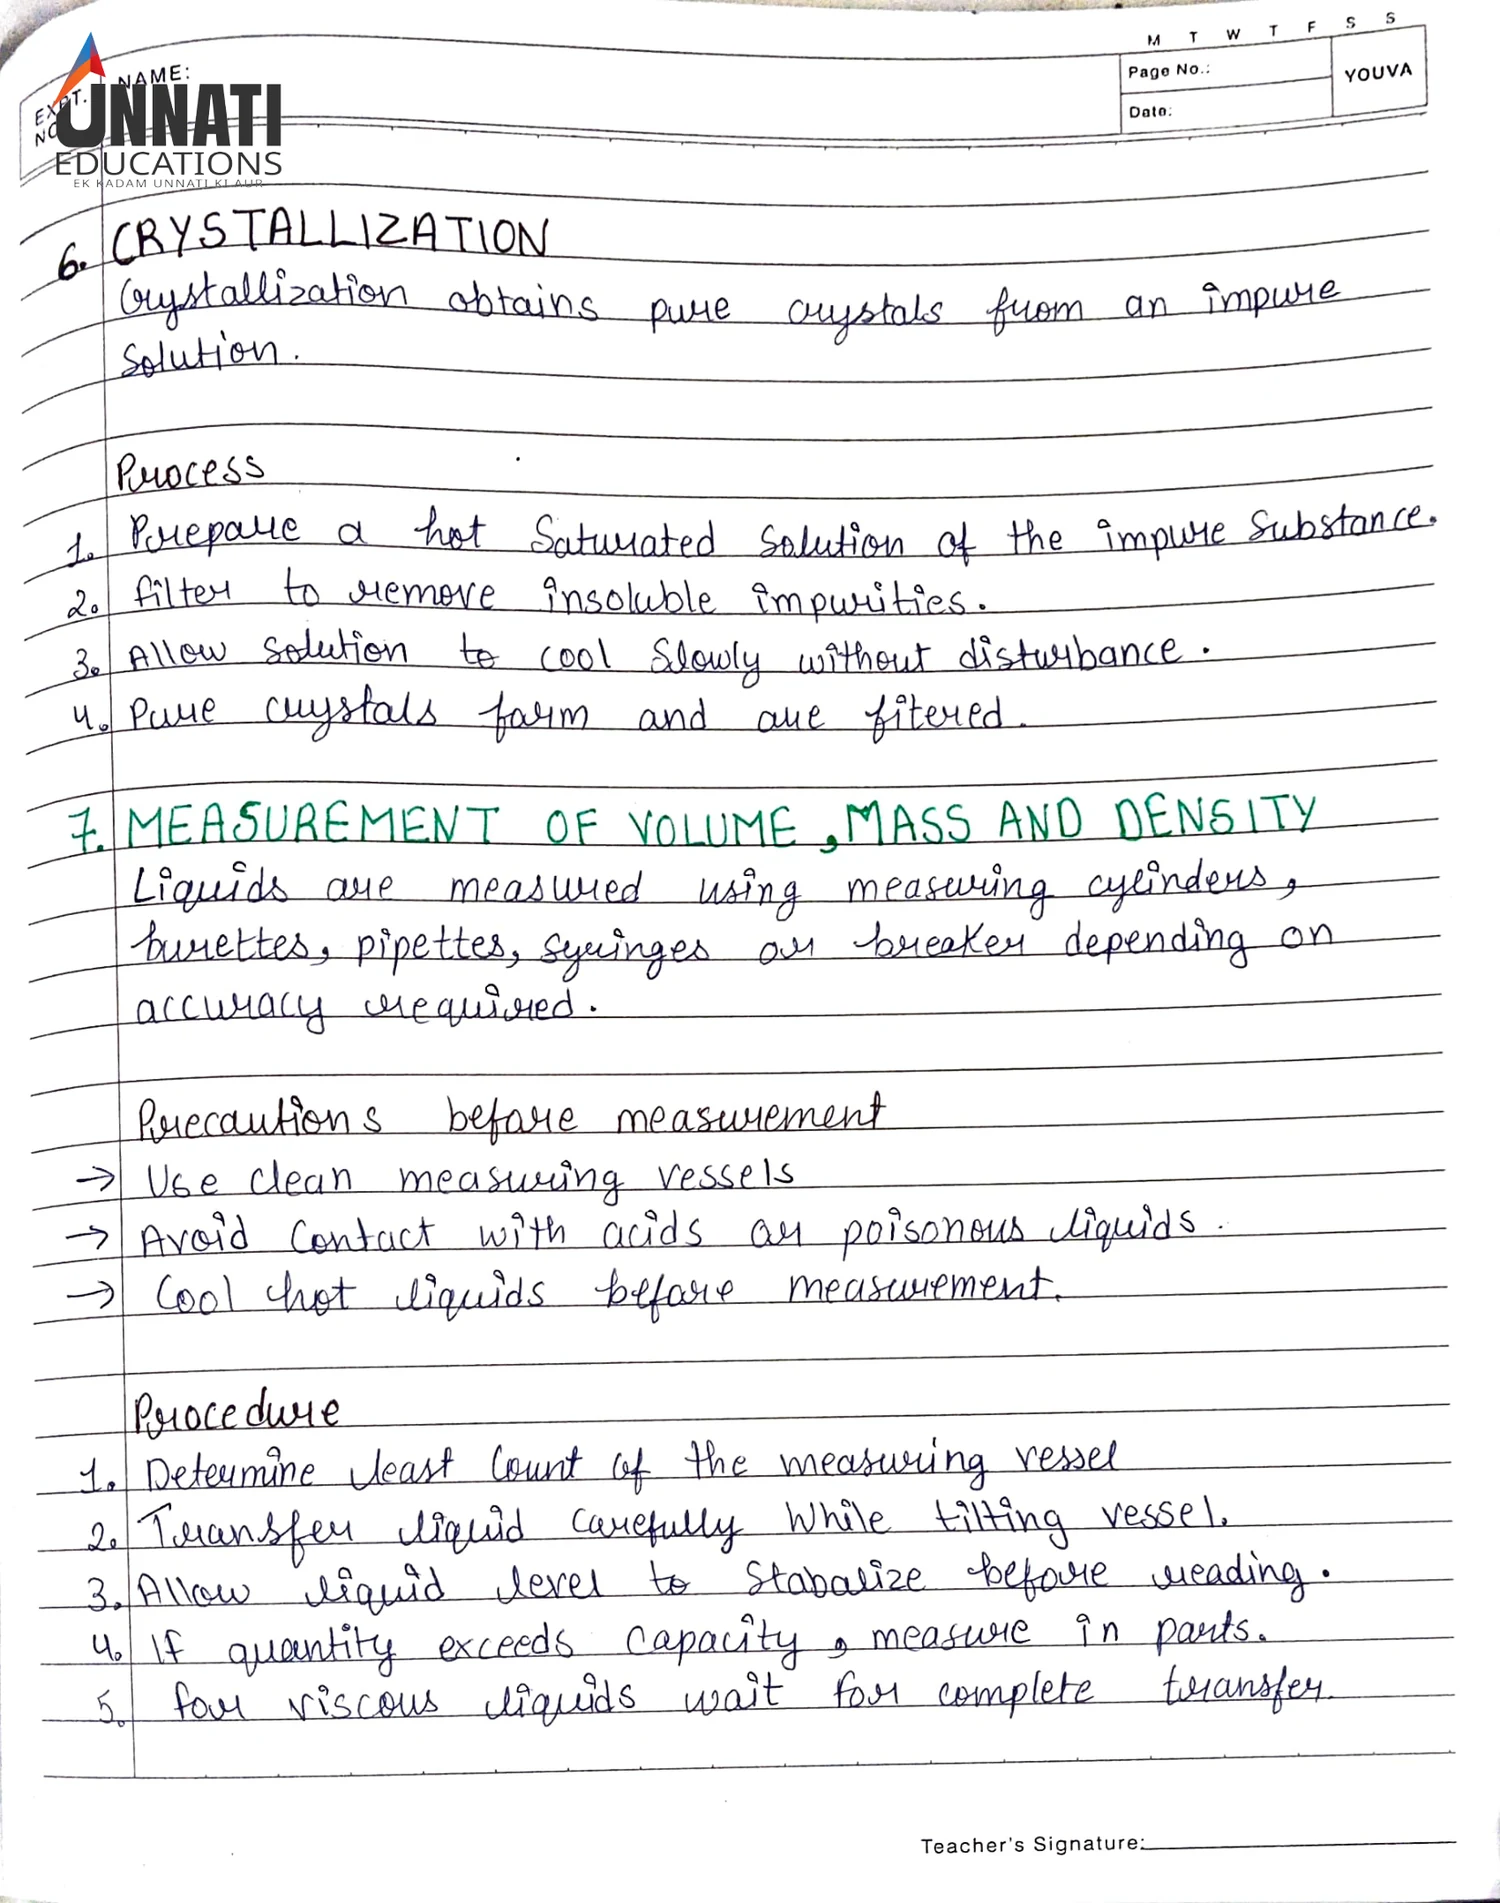 M T W T F S S
EXPT. NO. NAME:
Page No.:
YOUVA
Date:
UNNATI
EDUCATIONS
EK KADAM UNNATI KI AUR
6. CRYSTALLIZATION
Crystallization obtains pure crystals from an impure
Solution.
Process
1. Prepare a hot Saturated Solution of the impure Substance.
2. filter to remove insoluble impurities.
3. Allow solution to cool slowly without disturbance.
4. Pure crystals form and are fitered.
7. MEASUREMENT OF VOLUME, MASS AND DENSITY
Liquids are measured using measuring cylinders,
burettes, pipettes, syringes or breaker depending on
accuracy required.
Precautions before measurement
→ Use clean measuring vessels
→ Avoid Contact with acids or poisonous liquids.
→ Cool hot liquids before measurement.
Procedure
1. Determine least Count of the measuring vessel
2. Transfer liquid carefully While tilting vessel.
3. Allow liquid level to Stabalize before reading.
4. If quantity exceeds Capacity, measure in parts.
5. for viscous liquids wait for complete transfer.
Teacher's Signature: